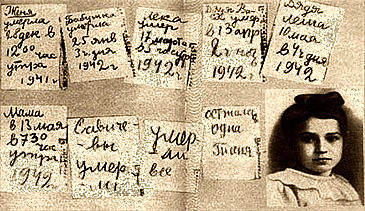 Женя
умерла
28 дек в
12 00 час
утра
1941 г
Бабушка
умерла
25 янв
3 ч. дня
1942 г
Лека
умер
17 марта
в 5 час утр
1942 г
Дядя Вася
умер
в 13 апр
2 ч ноч
1942 г
Дядя
Леша
10 мая
в 4 ч дня
1942 г
Мама
в 13 мая
в 7 30
час
утра
1942
Савиче-
вы
умер-
ли
умер-
ли
все
осталась
одна
Таня